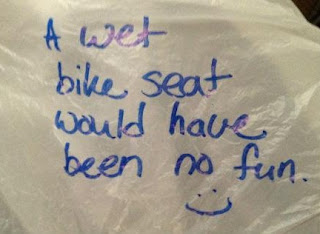 A wet
bike seat
would have
been no fun.